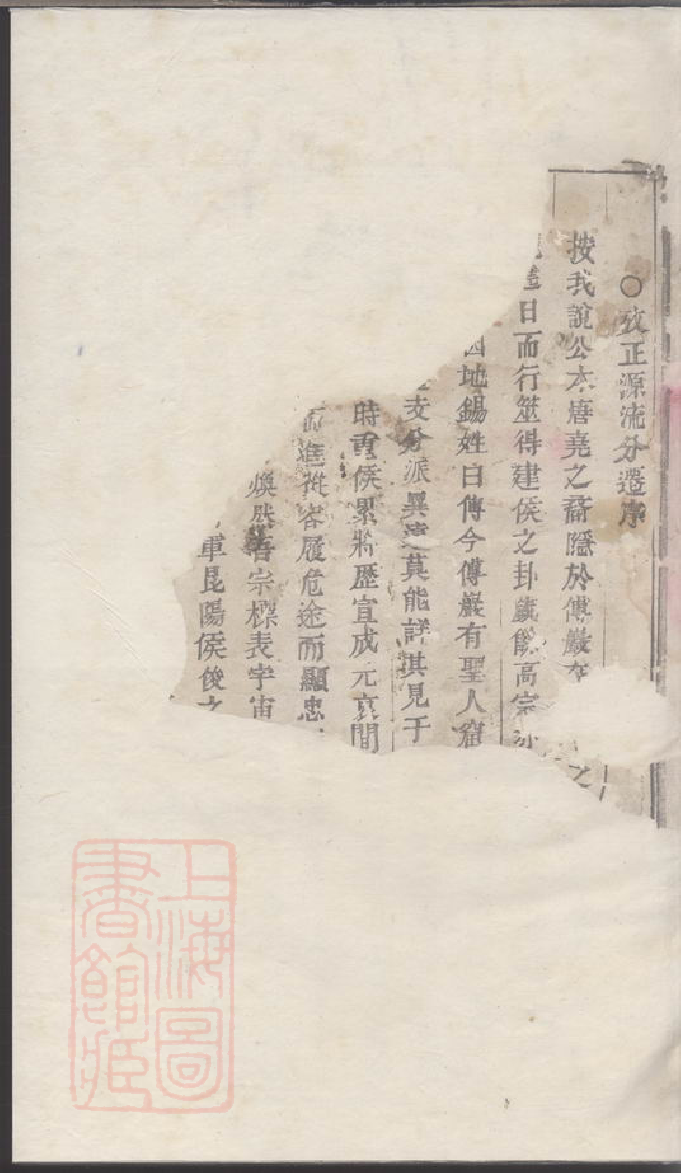 〇攷正源流分遷序
按我說公本唐堯之裔隱於傅巖 之
日而行筮得建侯之卦 高宗
因地錫姓曰傅今傅巖有聖人窟
支分派異 莫能詳其見于
時重侯累將歷宣成元哀間
進從容履危途而顯忠
煥然 宗標表宇宙
軍昆陽侯俊之
上海圖
書館藏